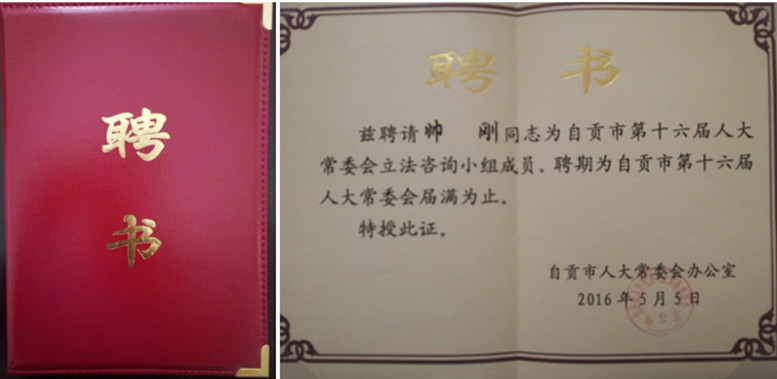 聘
书
聘 书
兹聘请帅 刚同志为自贡市第十六届人大
常委会立法咨询小组成员。聘期为自贡市第十六届
人大常委会届满为止。
特授此证。
自贡市人大常委会办公室
2016年5月5日